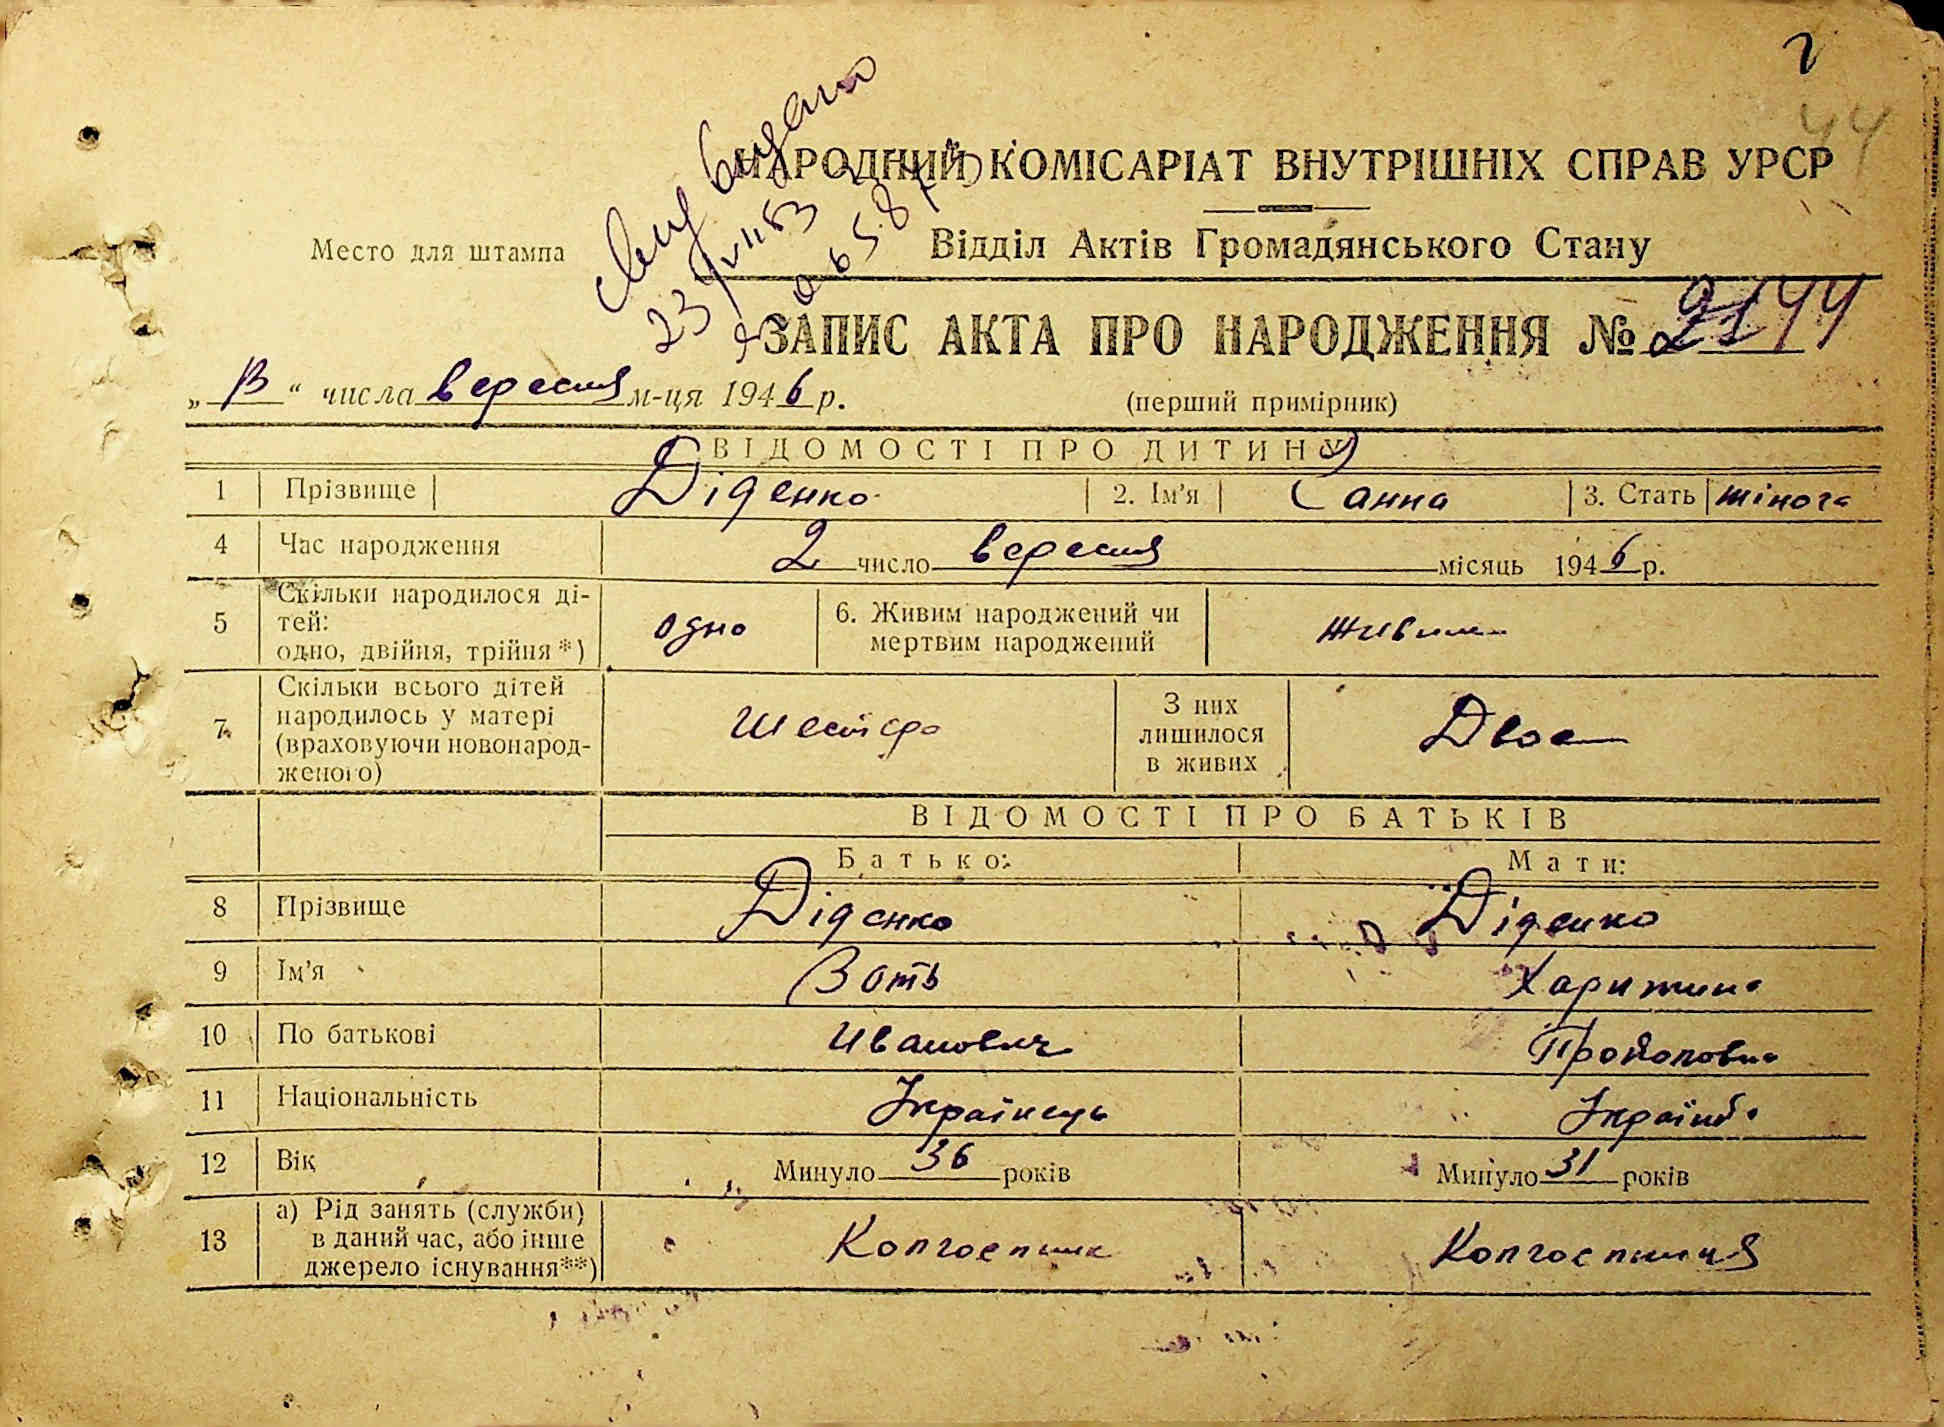 2
44
свид видано
23/VIII 53
065870
НАРОДНИЙ КОМІСАРІАТ ВНУТРІШНІХ СПРАВ УРСР
Место для штампа
Відділ Актів Громадянського Стану
ЗАПИС АКТА ПРО НАРОДЖЕННЯ № 44
„13“ числа вересня м-ця 1946 р.
(перший примірник)
ВІДОМОСТІ ПРО ДИТИНУ
1 Прізвище Діденко 2. Ім'я Ганна 3. Стать жіноча
4 Час народження 2 число вересня місяць 1946 р.
5 Скільки народилося дітей: одно, двійня, трійня *) одно 6. Живим народжений чи мертвим народжений живим
7. Скільки всього дітей народилось у матері (враховуючи новонародженого) Шестеро З них лишилося в живих Двое
ВІДОМОСТІ ПРО БАТЬКІВ
Батько: Мати:
8 Прізвище Діденко Діденко
9 Ім'я Зоть Харитина
10 По батькові Иванович Прокоповна
11 Національність Українець Українка
12 Вік Минуло 36 років Минуло 31 років
13 а) Рід занять (служби) в даний час, або інше джерело існування**) Колгоспник Колгоспниця